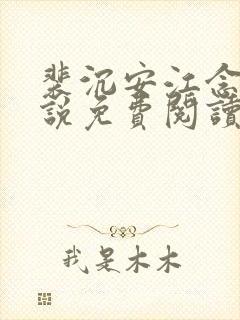 裴沉安江念
說免費閱讀
我是木木